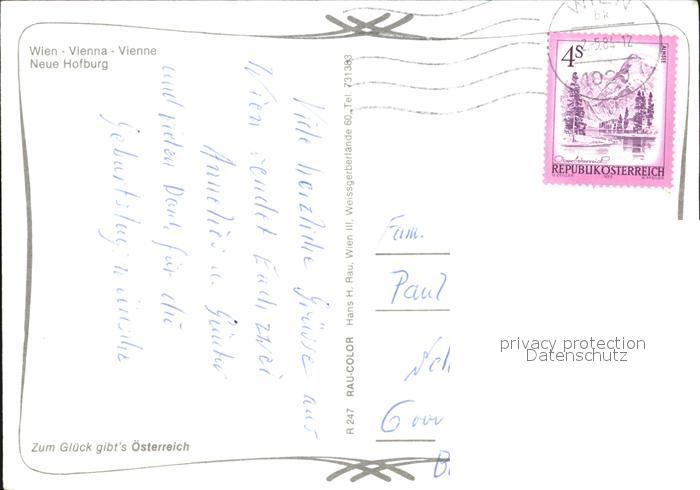 Wien - Vienna - Vienne
Neue Hofburg
Viele herzliche Grüsse aus
Wien sendet Euch zwei
Annelies u. Günter
und vielen Dank für die
Geburtstagswünsche
Zum Glück gibt's Österreich
R 247 RAU-COLOR Hans H. Rau, Wien III, Weissgerberlände 60, Tel. 731383
WIEN
bk
2.5.84-12
1020
4s
ALMSEE
REPUBLIK ÖSTERREICH
Fam.
Paul
privacy protection
Datenschutz